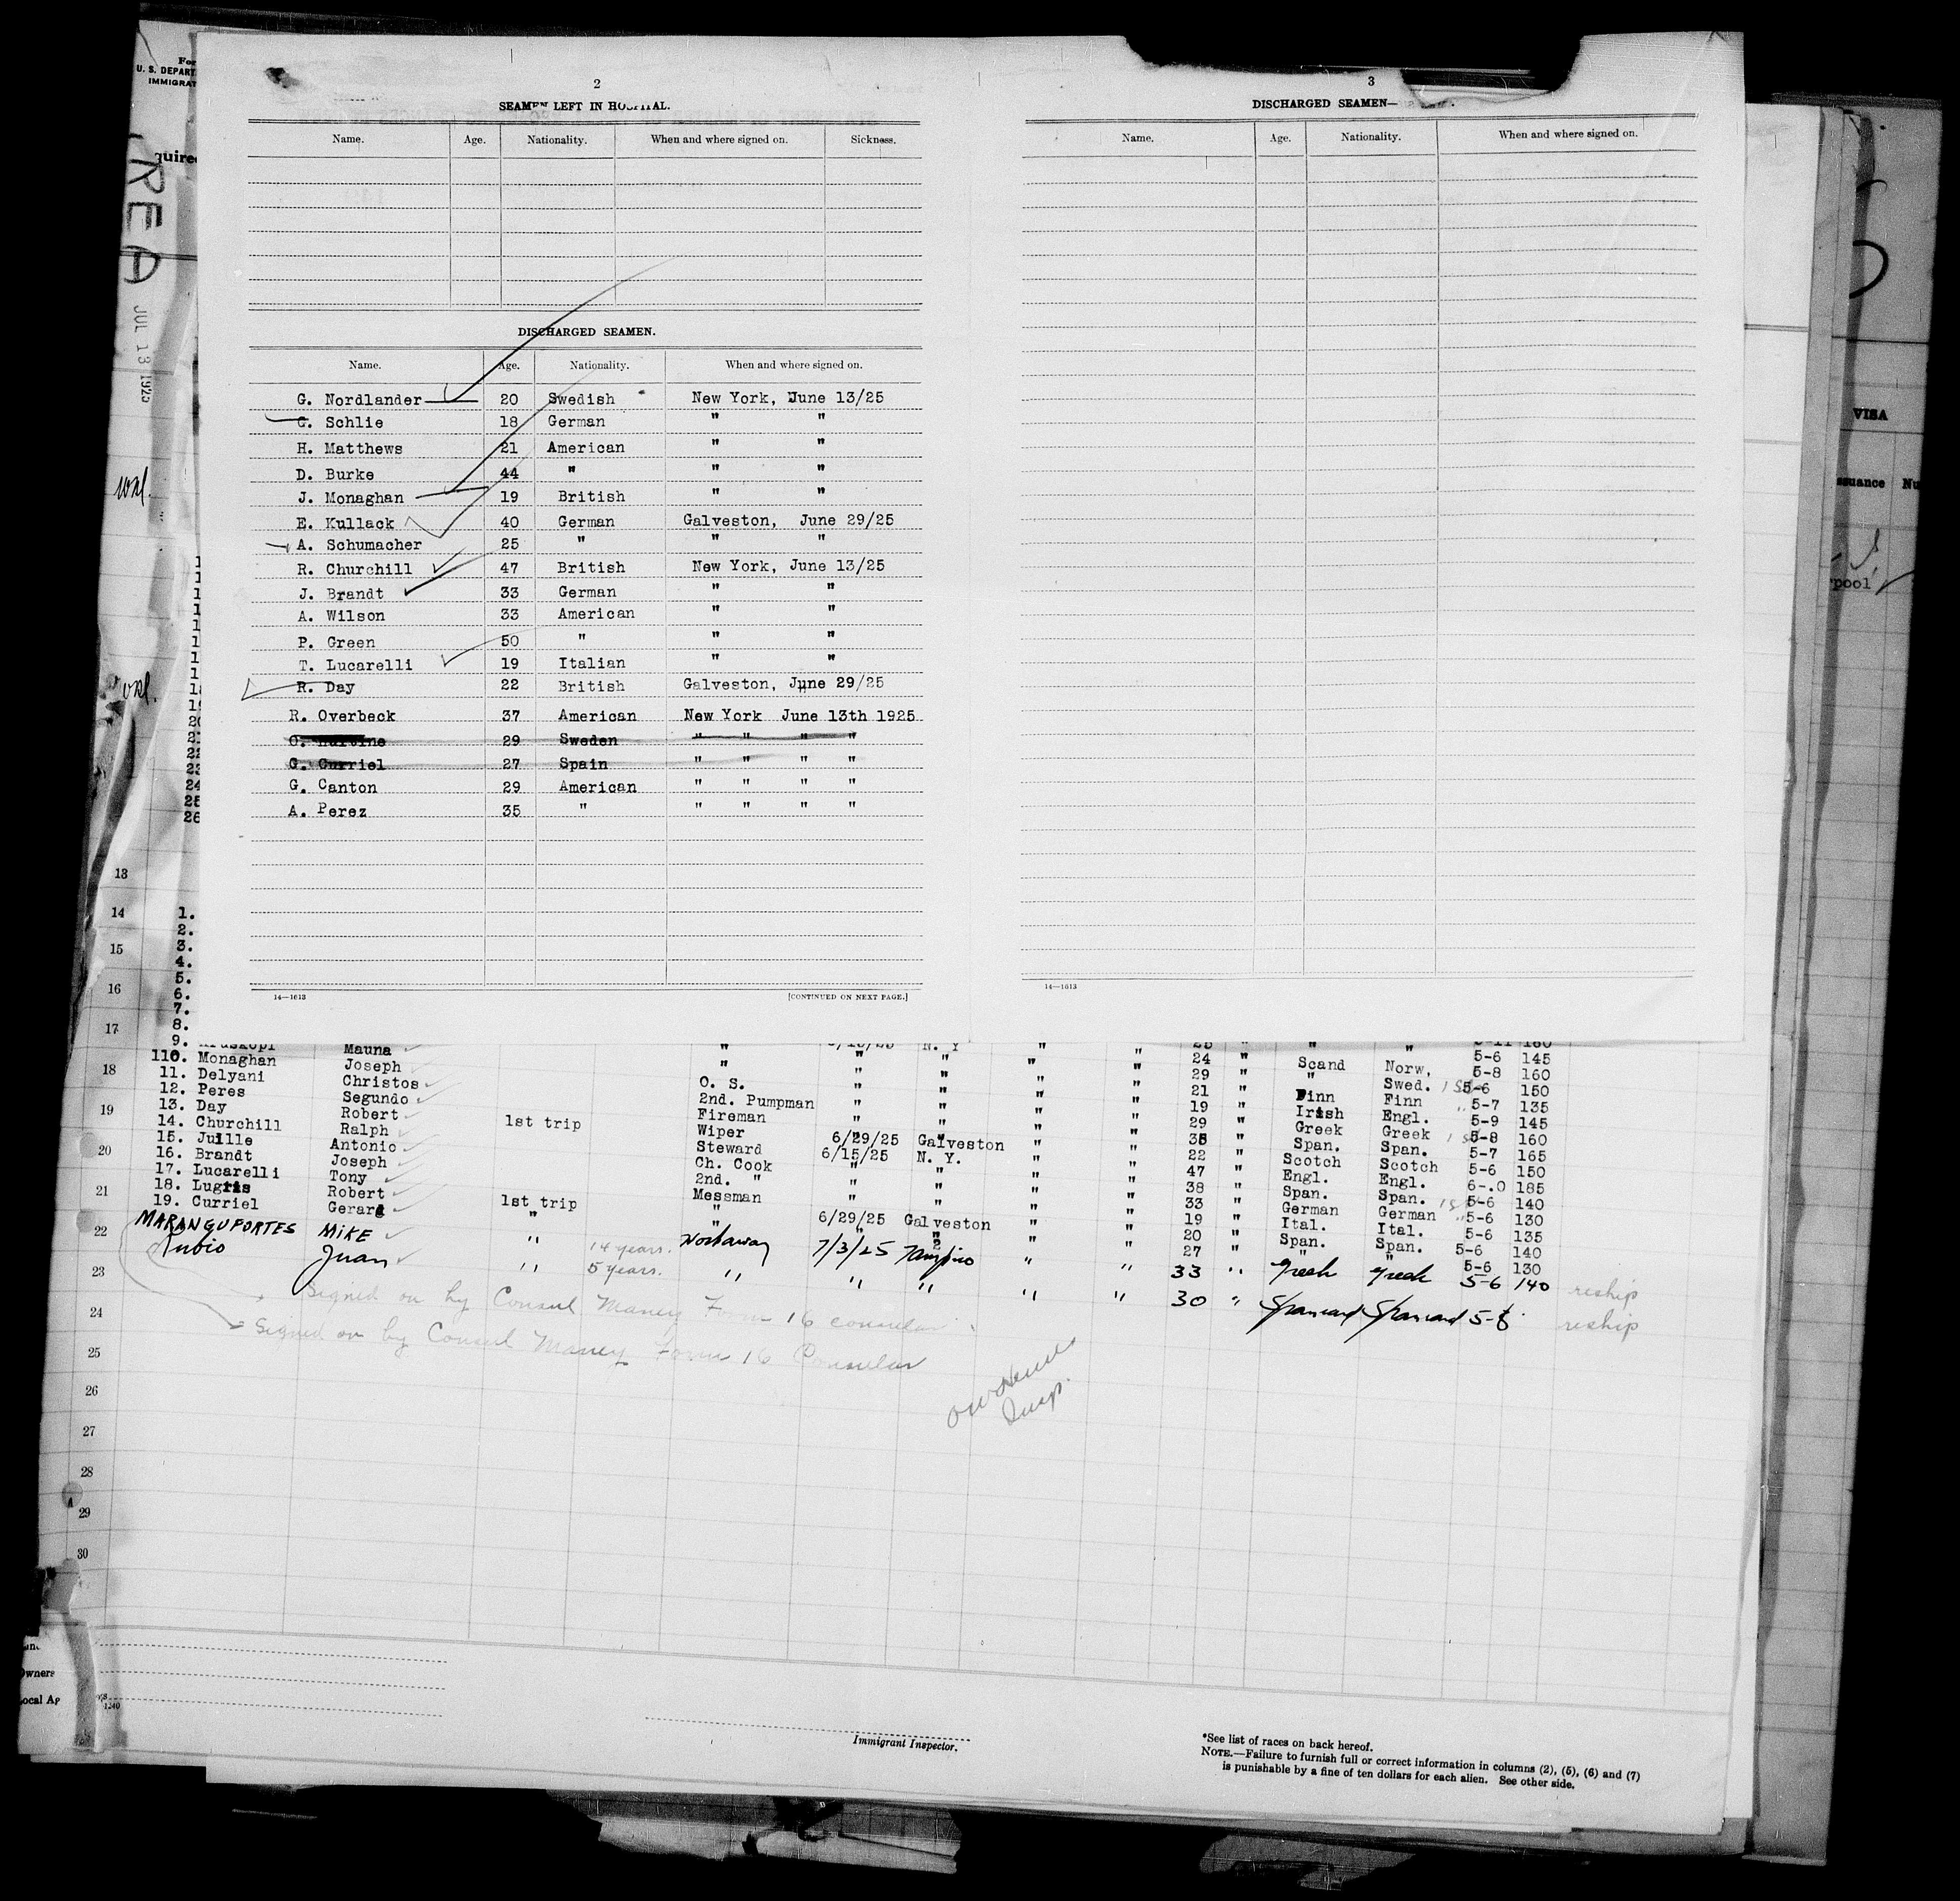 For
U. S. DEPART
IMMIGRAT
quire
REA
JUL 13 1925
2
SEAMEN LEFT IN HOSPITAL.
Name. Age. Nationality. When and where signed on. Sickness.
DISCHARGED SEAMEN.
Name. Age. Nationality. When and where signed on.
G. Nordlander 20 Swedish New York, June 13/25
G. Schlie 18 German " "
H. Matthews 21 American " "
D. Burke 44 " " "
J. Monaghan 19 British " "
E. Kullack 40 German Galveston, June 29/25
A. Schumacher 25 " " "
R. Churchill 47 British New York, June 13/25
J. Brandt 33 German " "
A. Wilson 33 American " "
P. Green 50 " " "
T. Lucarelli 19 Italian " "
R. Day 22 British Galveston, June 29/25
R. Overbeck 37 American New York June 13th 1925
O. 29 Sweden " " " "
G. Curriel 27 Spain " " " "
G. Canton 29 American " " " "
A. Perez 35 " " " " "
14—1613 [CONTINUED ON NEXT PAGE.]
3
DISCHARGED SEAMEN—
Name. Age. Nationality. When and where signed on.
14—1613
VISA
ssuance Nu
pool
13
14
15
16
17
18
19
20
21
22
23
24
25
26
27
28
29
30
1.
2.
3.
4.
5.
6.
7.
8.
9. Mauna " N. Y " 25 " " " 5-11 160
110. Monaghan Joseph " " " " " 24 " Scand Norw. 5-6 145
11. Delyani Christos O. S. " " " " 29 " " Swed. 5-8 160
12. Peres Segundo 2nd. Pumpman " " " " 21 " Finn Finn 5-6 150
13. Day Robert 1st trip Fireman " " " " 19 " Irish Engl. 5-7 135
14. Churchill Ralph Wiper 6/29/25 Galveston " " 29 " Greek Greek 5-9 145
15. Juille Antonio Steward 6/15/25 N. Y. " " 38 " Span. Span. 5-8 160
16. Brandt Joseph Ch. Cook " " " " 22 " Scotch Scotch 5-7 165
17. Lucarelli Tony 2nd. " " " " " 47 " Engl. Engl. 5-6 150
18. Lugris Robert 1st trip Messman " " " " 38 " Span. Span. 6-.0 185
19. Curriel Gerard " " 6/29/25 Galveston " " 33 " German German 5-6 140
19 " Ital. Ital. 5-6 130
20 " Span. Span. 5-6 135
27 " " " 5-6 140
5-6 130
MARANGUPORTES MIKE " 14 years. Workaway 7/3/25 Tampico " " 33 " Greek Greek 5-6 140 reship
Rubio Juan " 5 years. " " " " " 30 " Spaniard Spaniard 5-8 reship
Signed on by Consul Maney Form 16 consular
Signed on by Consul Maney Form 16 Consular
Insp.
Owners
Local Ag
1240
Immigrant Inspector.
*See list of races on back hereof.
NOTE.—Failure to furnish full or correct information in columns (2), (5), (6) and (7)
is punishable by a fine of ten dollars for each alien. See other side.